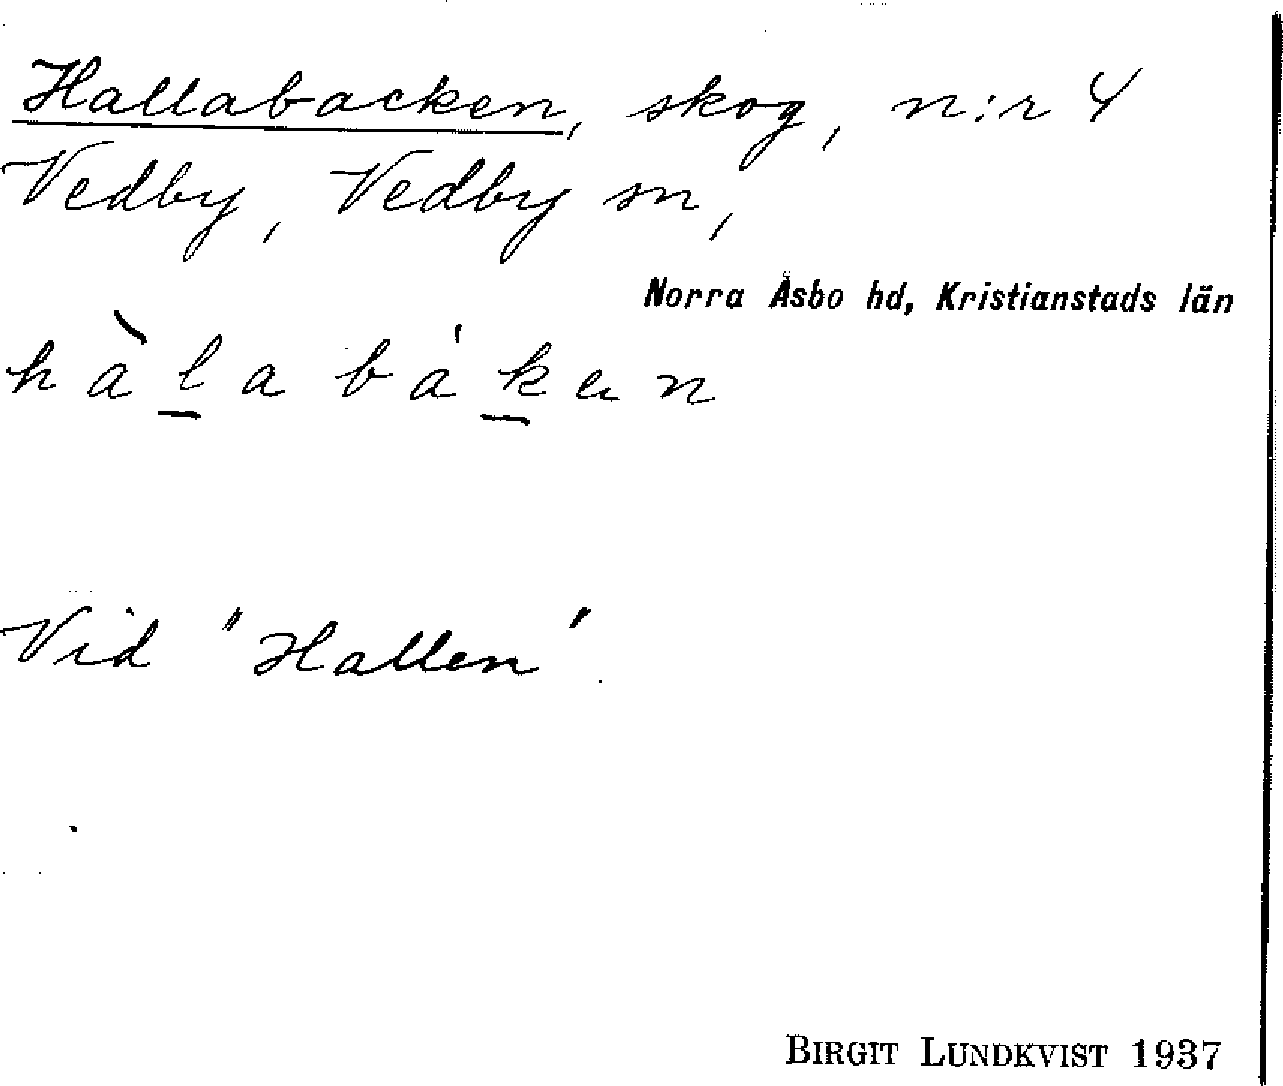 Hallabacken, skog, n:r 4
Vedby, Vedby sn,
Norra Åsbo hd, Kristianstads län
hàlabákan
Vid "Hallen".
BIRGIT LUNDKVIST 1937